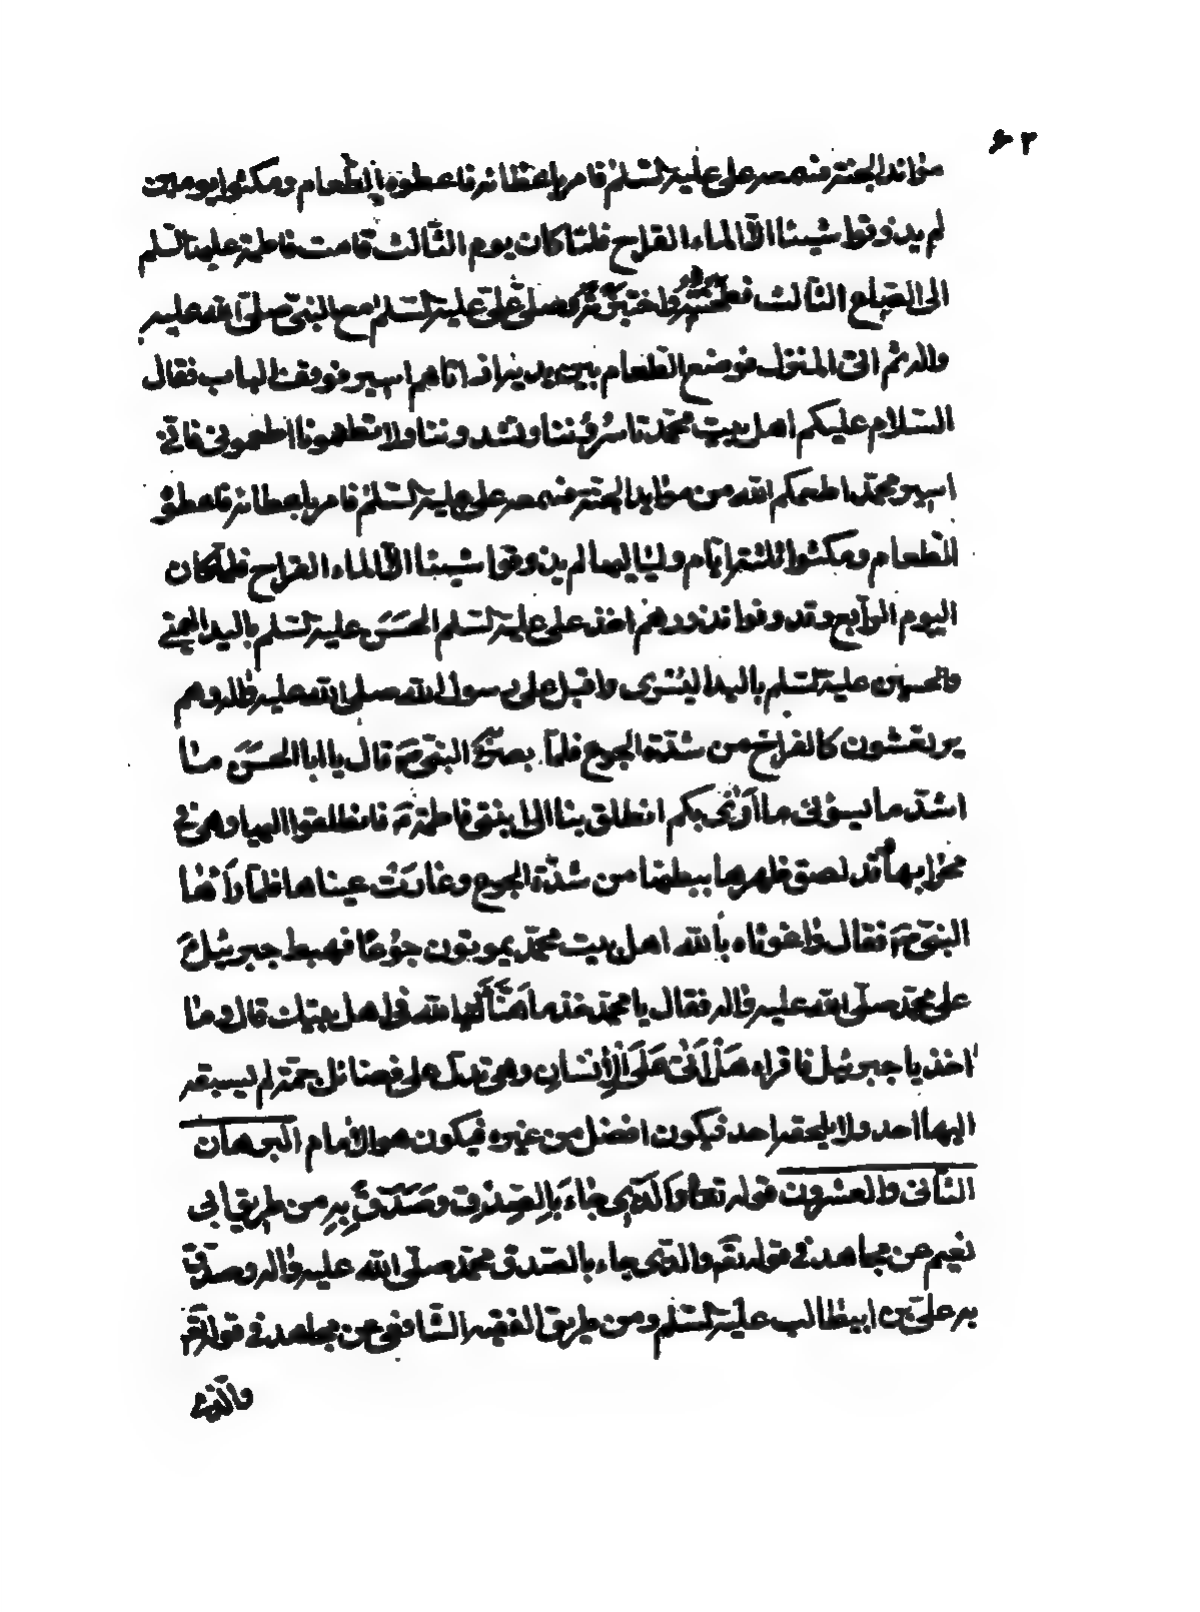 ٦٣
موائد الجنة فسمعه علي عليه السلم فامر باعطائه فاعطوه الطعام ومكثوا يومين
لم يذوقوا شيئا الا الماء القراح فلما كان يوم الثالث قامت فاطمة عليها السلم
الى الصاع الثالث فطحنته واختبزته وصلى علي عليه السلم مع النبي صلى الله عليه
واله ثم اتى المنزل فوضع الطعام بين يديه اذ اتاهم اسير فوقف بالباب فقال
السلام عليكم اهل بيت محمد تاسروننا وتشدوننا ولا تطعمونا اطعموني فاني
اسير محمد اطعمكم الله من موايد الجنة فسمعه علي عليه السلم فامر باعطائه فاعطوه
الطعام ومكثوا ثلثة ايام ولياليها لم يذوقوا شيئا الا الماء القراح فلما كان
اليوم الرابع وقد وفوا نذورهم اخذ علي عليه السلم الحسن عليه السلم باليد اليمنى
والحسين عليه السلم باليد اليسرى واقبل على رسول الله صلى الله عليه واله وهم
يرتعشون كالفراخ من شدة الجوع فلما بصر النبي ص قال يا ابا الحسن ما
اشد ما يسؤني ما ارى بكم انطلق بنا الى ابنتي فاطمة فانطلقوا اليها وهي في
محرابها قد لصق ظهرها ببطنها من شدة الجوع وغارت عيناها فلما راها
النبي ص فقال واغوثاه بالله اهل بيت محمد يموتون جوعا فهبط جبرئيل
على محمد صلى الله عليه واله فقال يا محمد خذ ما هناك الله في اهل بيتك قال وما
اخذ يا جبرئيل فاقراه هَلْ اَتى عَلَى الْاِنْسَانِ وهي تدل على فضائل جمة لم يسبقه
اليها احد ولا يلحقه احد فيكون افضل من غيره فيكون هو الامام البرهان
الثاني والعشرون قوله تعا وَالَّذِي جَاءَ بِالصِّدْقِ وَصَدَّقَ بِهِ من طريق ابي
نعيم عن مجاهد في قوله تعم والذي جاء بالصدق محمد صلى الله عليه واله وصدق
به علي بن ابيطالب عليه السلم ومن طريق الفقيه الشافعي عن مجاهد في قوله تعم
والذي